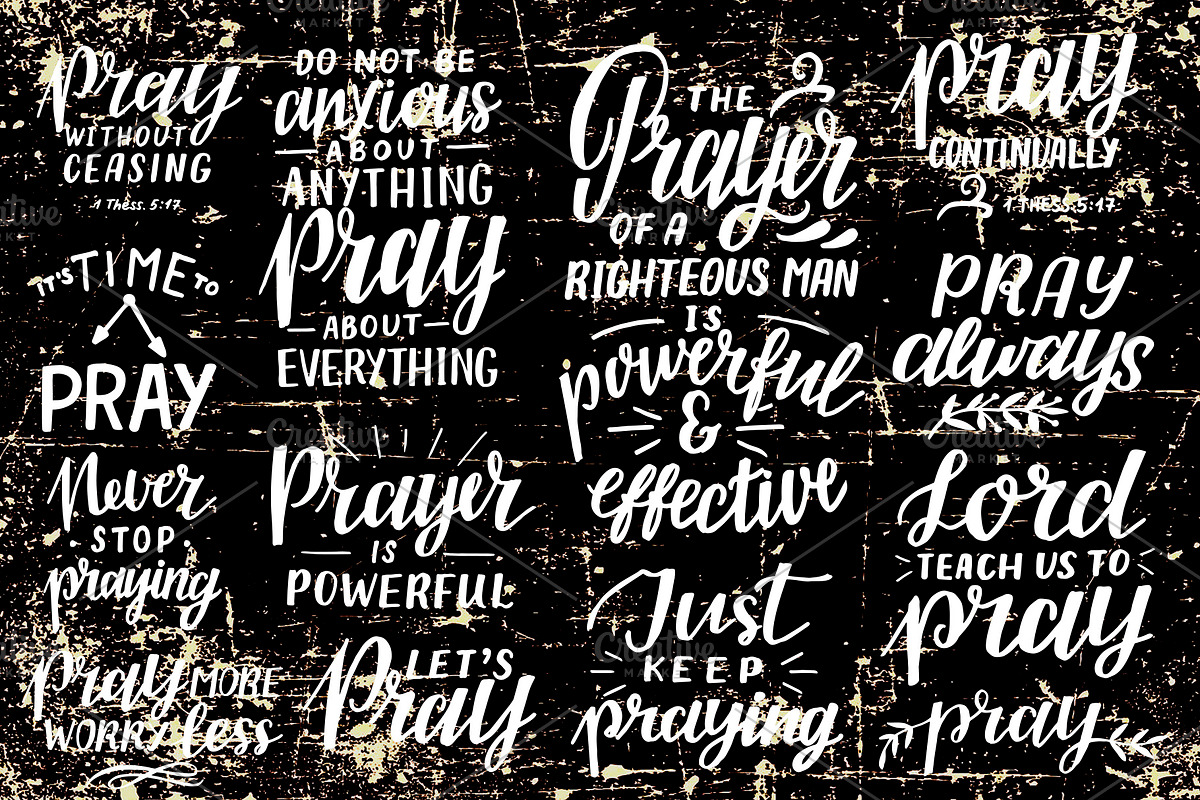 pray
WITHOUT
CEASING
1 Thess. 5:17
IT'S TIME TO
PRAY
Never
STOP
praying
pray MORE
WORRY less
DO NOT BE
anxious
ABOUT
ANYTHING
Pray
ABOUT
EVERYTHING
Prayer
IS
POWERFUL
LET'S
Pray
THE
Prayer
OF A
RIGHTEOUS MAN
IS
powerful
&
effective
Just
KEEP
praying
pray
CONTINUALLY
1 THESS. 5:17
PRAY
always
Lord
TEACH US TO
pray
pray
Creative
MARKET
Creative
MARKET
Creative
MARKET
Creative
MARKET
Creative
MARKET
Creative
MARKET